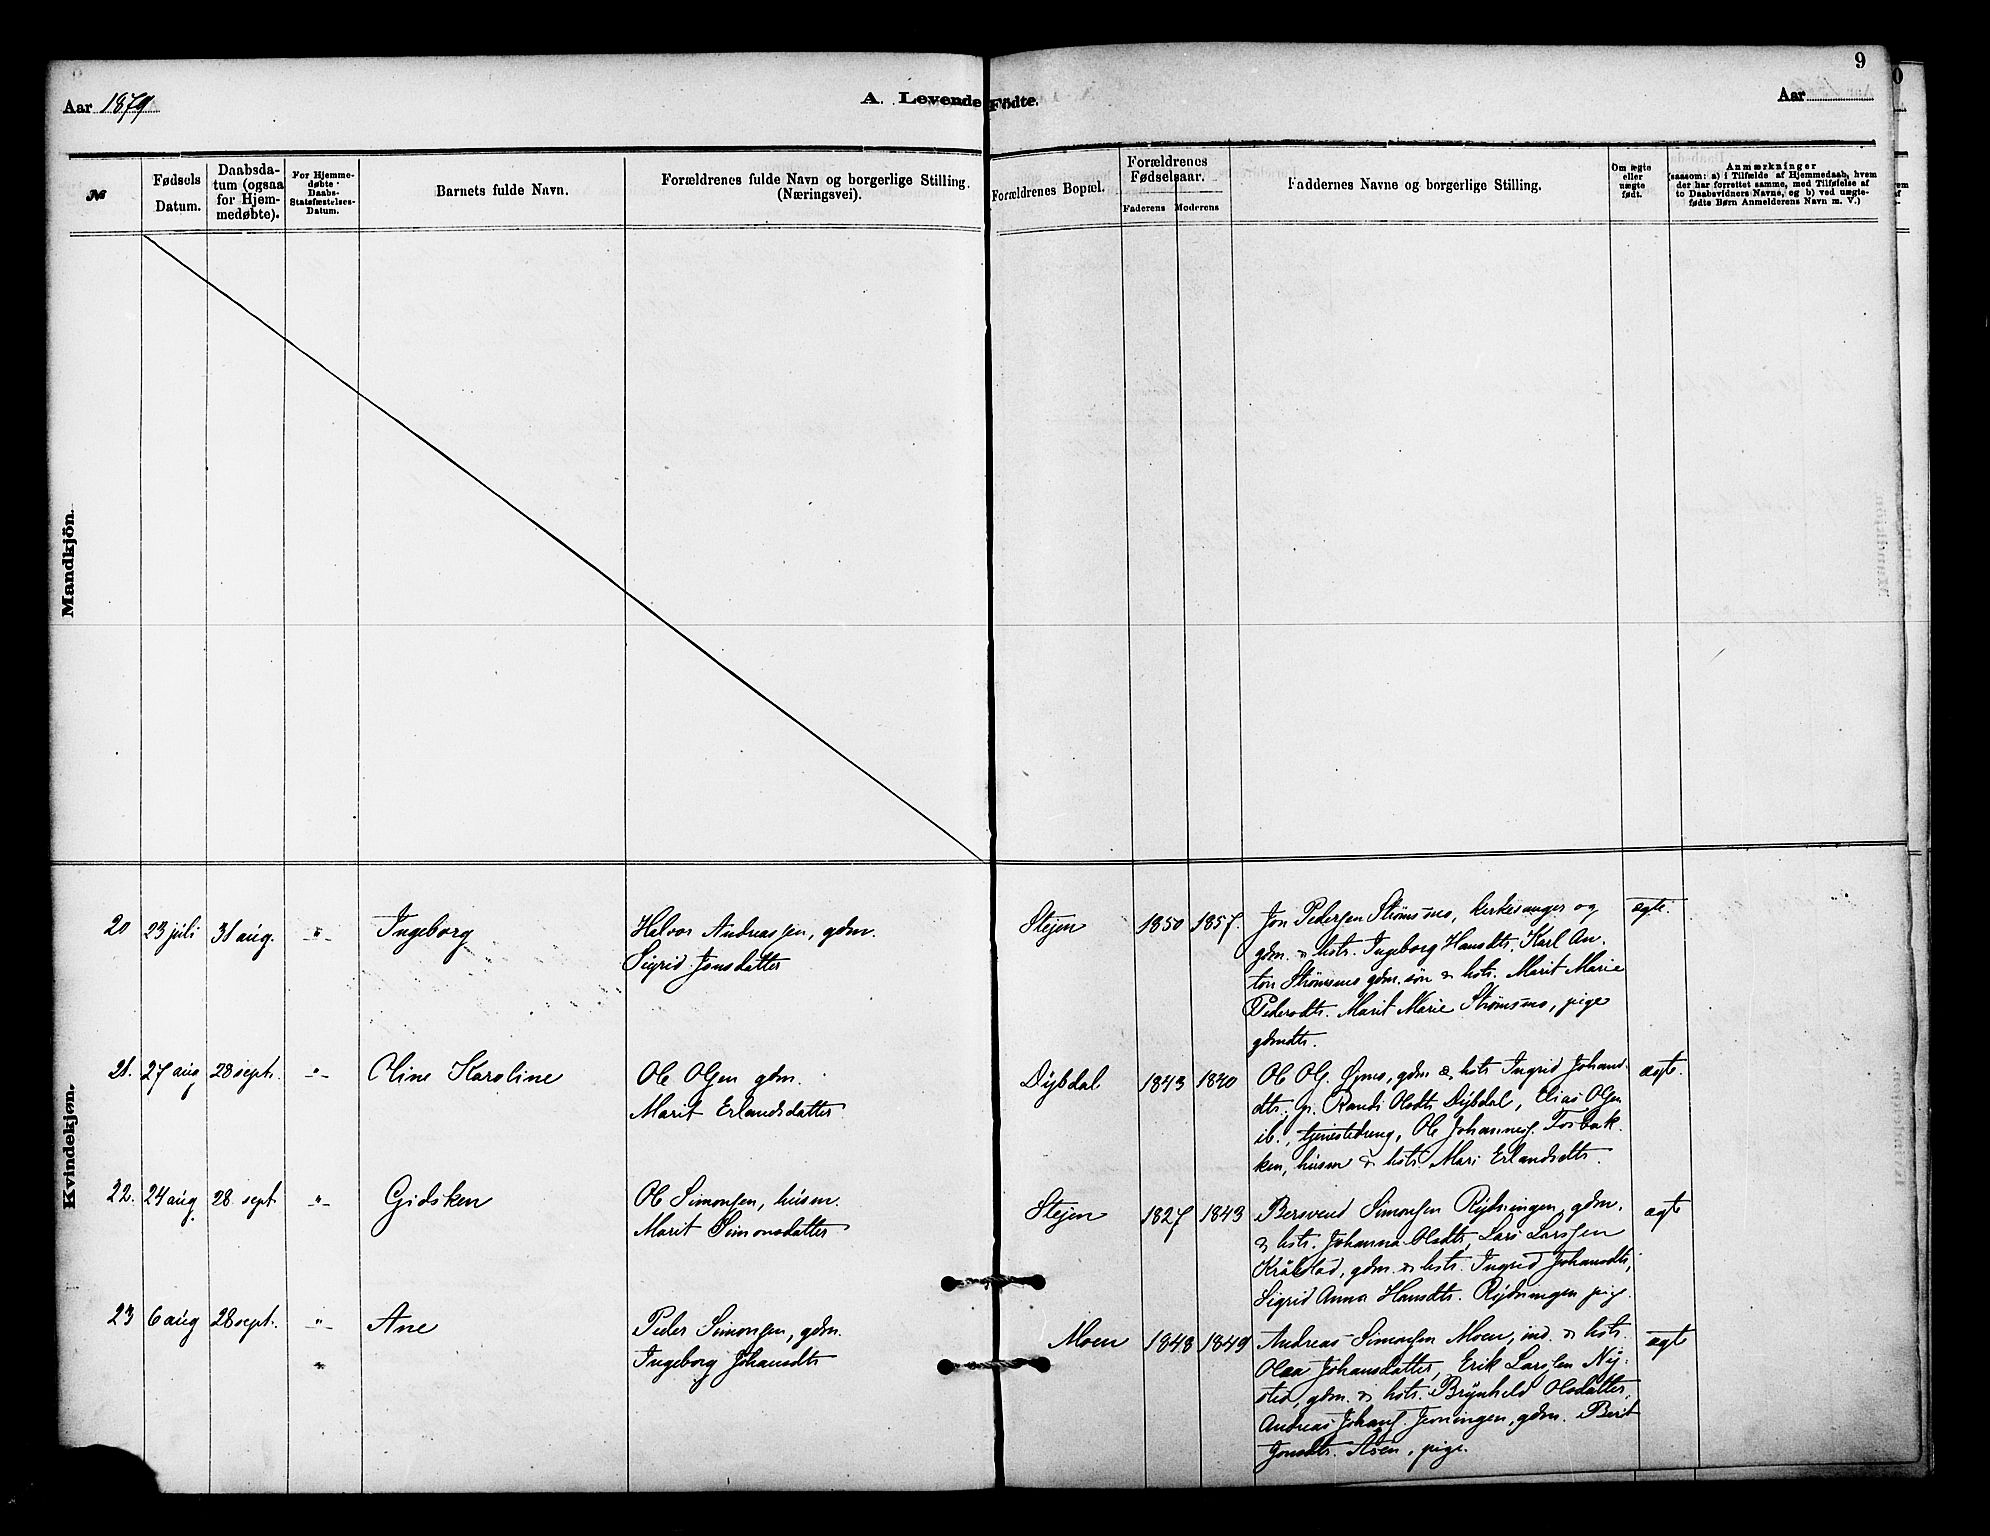 9
Aar 1879
A. Levende Fødte.
Aar
№
Fødsels Datum.
Daabsdatum (ogsaa for Hjemmedøbte).
For Hjemmedøbte Daabs-Stadfæstelses-Datum.
Barnets fulde Navn.
Forældrenes fulde Navn og borgerlige Stilling. (Næringsvei).
Forældrenes Bopæl.
Forældrenes Fødselsaar.
Faderens Moderens
Faddernes Navne og borgerlige Stilling.
Om ægte eller uægte født.
Anmærkninger
(saasom: a) i Tilfælde af Hjemmedaab, hvem der har forrettet samme, med Tilføielse af to Daabsvidners Navne, og b) ved uægtefødte Børn Anmelderens Navn m. V.)
Mandkjön.
Kvindekjøn.
20 23 juli 31 aug. -"- Ingeborg
Halvor Andreassen, gdm.
Sigrid Jonsdatter
Stejen 1850 1857.
Jon Pedersen Strømsmo, kirkesanger og
gdm. & hstr. Ingeborg Hansdtr. Karl An-
ton Strømsmo gdm. søn & hstr. Marit Marie
Pedersdtr. Marit Marie Strømsmo, pige
gdmdtr.
ægte.
21. 27 aug 28 sept. -"- Oline Karoline
Ole Olsen gdm.
Marit Erlandsdatter
Dybdal 1843 1840
Ole Ols. Øjmo, gdm & hstr Ingrid Johans-
dtr, p. Randi Olsdtr Dybdal, Elias Olsen
ib., tjenestedreng, Ole Johannes. Torbak-
ken, husm & hstr Mari Erlandsdtr.
ægte.
22. 24 aug. 28. sept -"- Gidsken
Ole Simonsen, husm.
Marit Simonsdatter
Stejen 1827 1843
Bersvend Simonsen Rydningen, gdm.
& hstr. Johanna Olsdtr, Lars Larssen
Kråkstad, gdm. & hstr. Ingrid Johansdtr,
Sigrid Anna Hansdtr. Rydningen pig.
ægte
23 6 aug 28 sept. -"- Ane
Peder Simonsen, gdm.
" Ingeborg Johansdtr
Moen 1848 1849
Andreas Simonsen Moen, ind. & hstr.
Olea Johansdatter, Erik Larssen Ny-
sted, gdm. & hstr. Brynhild Olsdatter,
Andreas Johans. Jenningen, gdm. Berit
Jonsdtr. Åsen, pige.
ægte